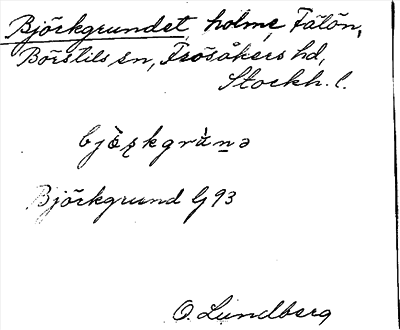 Björkgrundet, holme, Fälön,
Börstils sn, Frösåkers hd,
Stockh. l.
Björkgrund G 93
O. Lundberg